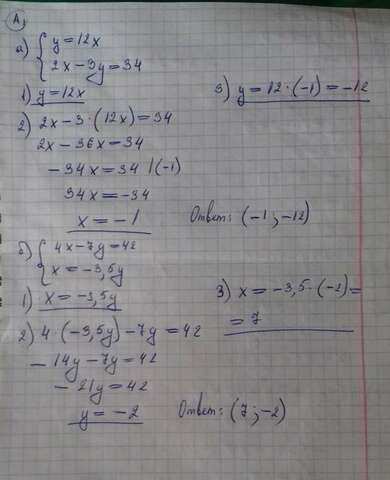 А
а) { y = 12x
2x - 3y = 34
1) y = 12x
2) 2x - 3·(12x) = 34
2x - 36x = 34
- 34x = 34 |·(-1)
34x = -34
x = -1
3) y = 12·(-1) = -12
Ответ: (-1; -12)
б) { 4x - 7y = 42
x = -3,5y
1) x = -3,5y
2) 4·(-3,5y) - 7y = 42
- 14y - 7y = 42
- 21y = 42
y = -2
3) x = -3,5·(-2) =
= 7
Ответ: (7; -2)